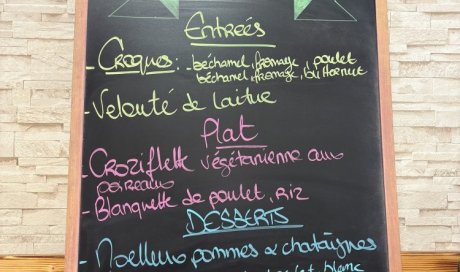 Entrées
- Croques : - béchamel, fromage, poulet
béchamel, fromage, butternut
- Velouté de laitue
Plat
- Croziflette végétarienne aux
poireaux
- Blanquette de poulet, riz
DESSERTS
- Moelleux pommes & chataîgnes
blanc